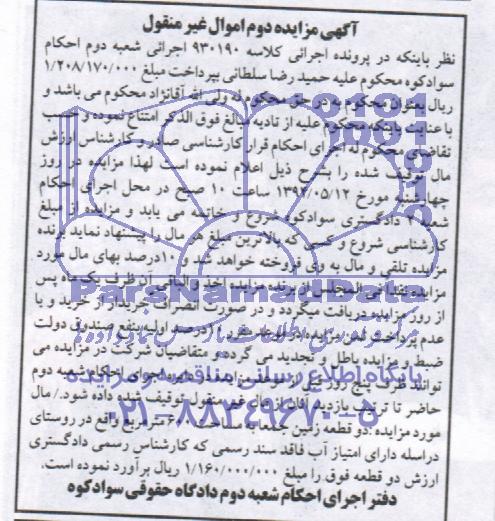 آگهی مزایده دوم اموال غیر منقول
نظر باینکه در پرونده اجرائی کلاسه ۹۳۰۱۹۰ اجرائی شعبه دوم احکام
سوادکوه محکوم علیه حمید رضا سلطانی بپرداخت مبلغ ۱/۲۰۸/۱۷۰/۰۰۰
ریال بعنوان محکوم به در حق محکوم له ولی الله آقانژاد محکوم می باشد و
با عنایت باینکه محکوم علیه از تادیه مبالغ فوق الذکر امتناع نموده و حسب
تقاضای محکوم له اجرای احکام قرار کارشناسی صادر و کارشناس ارزش
مال توقیف شده را بشرح ذیل اعلام نموده است لهذا مزایده در روز
چهارشنبه مورخ ۱۳۹۴/۰۵/۱۲ ساعت ۱۰ صبح در محل اجرای احکام
شعبه ۲ دادگستری سوادکوه شروع و خاتمه می یابد و مزایده از مبلغ
کارشناسی شروع و کسی که بالاترین مبلغ هر مال را پیشنهاد نماید برنده
مزایده تلقی و مال به وی فروخته خواهد شد و ۱۰درصد بهای مال مورد
مزایده فی المجلس از برنده مزایده اخذ و الباقی آن ظرف یک ماه پس
از روز مزایده دریافت میگردد و در صورت انصراف خریدار از خرید و یا
عدم پرداخت ثمن مزایده در موعد مقرر ۱۰درصد اولیه بنفع صندوق دولت
ضبط و مزایده باطل و تجدید می گردد و متقاضیان شرکت در مزایده می
توانند ظرف پنج روز قبل از موعد مزایده در دایره اجرای احکام شعبه دوم
حاضر تا ترتیب بازدید آنان از مال غیر منقول توقیف شده داده شود./ مال
مورد مزایده:دو قطعه زمین جمعا به مساحت مترمربع واقع در روستای
دراسله دارای امتیاز آب فاقد سند رسمی که کارشناس رسمی دادگستری
ارزش دو قطعه فوق را مبلغ ۱/۱۶۰/۰۰۰/۰۰۰ ریال برآورد نموده است.
دفتر اجرای احکام شعبه دوم دادگاه حقوقی سوادکوه
ParsNamadData
پایگاه اطلاع رسانی مناقصه و مزایده
۰۲۱-۸۸۳۴۹۶۷۰-۵